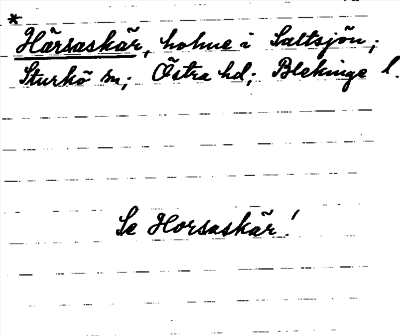 *
Hårsaskär, holme i Saltsjön;
Sturkö sn; Östra hd; Blekinge l.
Se Horsaskär!